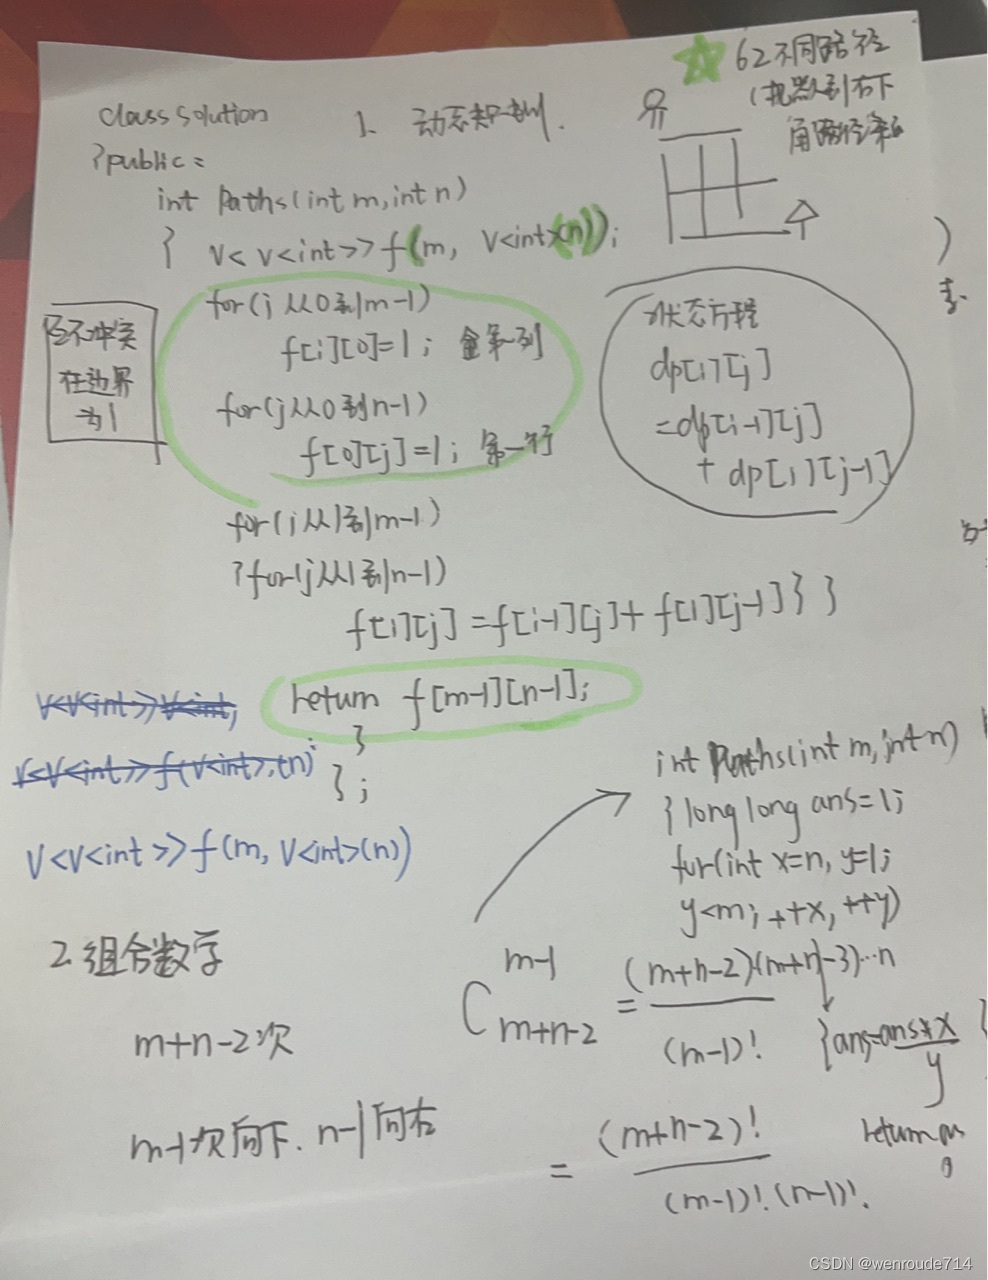 62不同路径
(机器人到右下
角路径条数
class solution
1. 动态规划.
{public:
int Paths(int m,int n)
{ V< V<int>> f(m, V<int>(n));
for(i从0到m-1)
f[i][0]=1; 第一列
for(j从0到n-1)
f[0][j]=1; 第一行
在边界
为1
状态方程
dp[i][j]
=dp[i-1][j]
+ dp[i][j-1]
for(i从1到m-1)
{for(j从1到n-1)
f[i][j]=f[i-1][j]+ f[i][j-1]} }
return f[m-1][n-1];
}
};
V<V<int>>V<int,
V<V<int>>f(V<int>,(n)
V<V<int>>f(m, V<int>(n))
int Paths(int m,int n)
{long long ans=1;
for(int x=n, y=1;
y<m; ++x, ++y)
{ans=ans*x/y}
return ans
2.组合数学
m+n-2次
m-1次向下. n-1向右
C m-1 m+n-2 = (m+n-2)(m+n-3)…n / (m-1)!
= (m+n-2)! / (m-1)!.(n-1)!.
CSDN @wenroude714